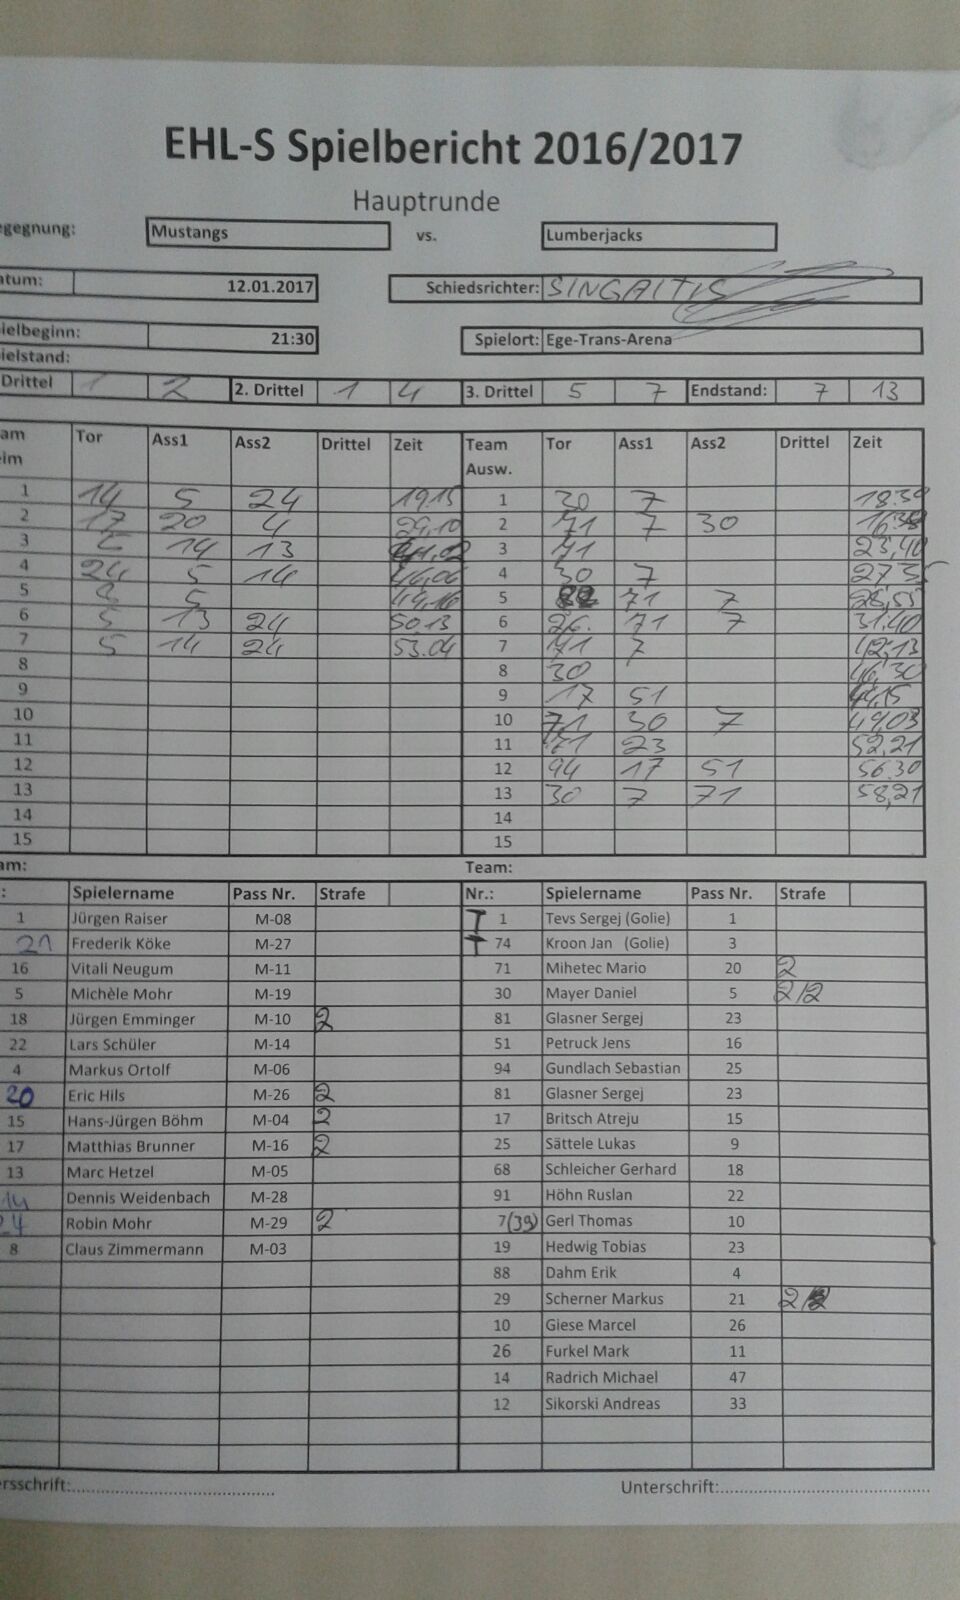 EHL-S Spielbericht 2016/2017
Hauptrunde
gegnung: Mustangs vs. Lumberjacks
atum: 12.01.2017 Schiedsrichter: SINGAITIS
ielbeginn: 21:30 Spielort: Ege-Trans-Arena
ielstand:
Drittel 1 2 2. Drittel 1 4 3. Drittel 5 7 Endstand: 7 13
am Tor Ass1 Ass2 Drittel Zeit Team Tor Ass1 Ass2 Drittel Zeit
im Ausw.
1 14 5 24 19.15 1 30 7 18.39
2 17 20 4 29,10 2 71 7 30
3 14 13 3 71 23,40
4 24 5 14 46,06 4 30 7 27 35
5 5 5 71 7 28,55
6 5 13 24 50.13 6 26. 71 7 31.40
7 5 14 24 53.04 7 71 7 42,13
8 8 30 46,30
9 9 17 51 44,15
10 10 71 30 7 49,03
11 11 71 23 52,21
12 12 94 17 51 56.30
13 13 30 7 71 58,21
14 14
15 15
am: Team:
: Spielername Pass Nr. Strafe Nr.: Spielername Pass Nr. Strafe
1 Jürgen Raiser M-08 T 1 Tevs Sergej (Golie) 1
21 Frederik Köke M-27 T 74 Kroon Jan (Golie) 3
16 Vitali Neugum M-11 71 Mihetec Mario 20 2
5 Michèle Mohr M-19 30 Mayer Daniel 5 2/2
18 Jürgen Emminger M-10 2 81 Glasner Sergej 23
22 Lars Schüler M-14 51 Petruck Jens 16
4 Markus Ortolf M-06 94 Gundlach Sebastian 25
20 Eric Hils M-26 2 81 Glasner Sergej 23
15 Hans-Jürgen Böhm M-04 2 17 Britsch Atreju 15
17 Matthias Brunner M-16 2 25 Sättele Lukas 9
13 Marc Hetzel M-05 68 Schleicher Gerhard 18
14 Dennis Weidenbach M-28 91 Höhn Ruslan 22
24 Robin Mohr M-29 2 7(39) Gerl Thomas 10
8 Claus Zimmermann M-03 19 Hedwig Tobias 23
88 Dahm Erik 4
29 Scherner Markus 21 2
10 Giese Marcel 26
26 Furkel Mark 11
14 Radrich Michael 47
12 Sikorski Andreas 33
ersschrift:.......................................... Unterschrift:..........................................